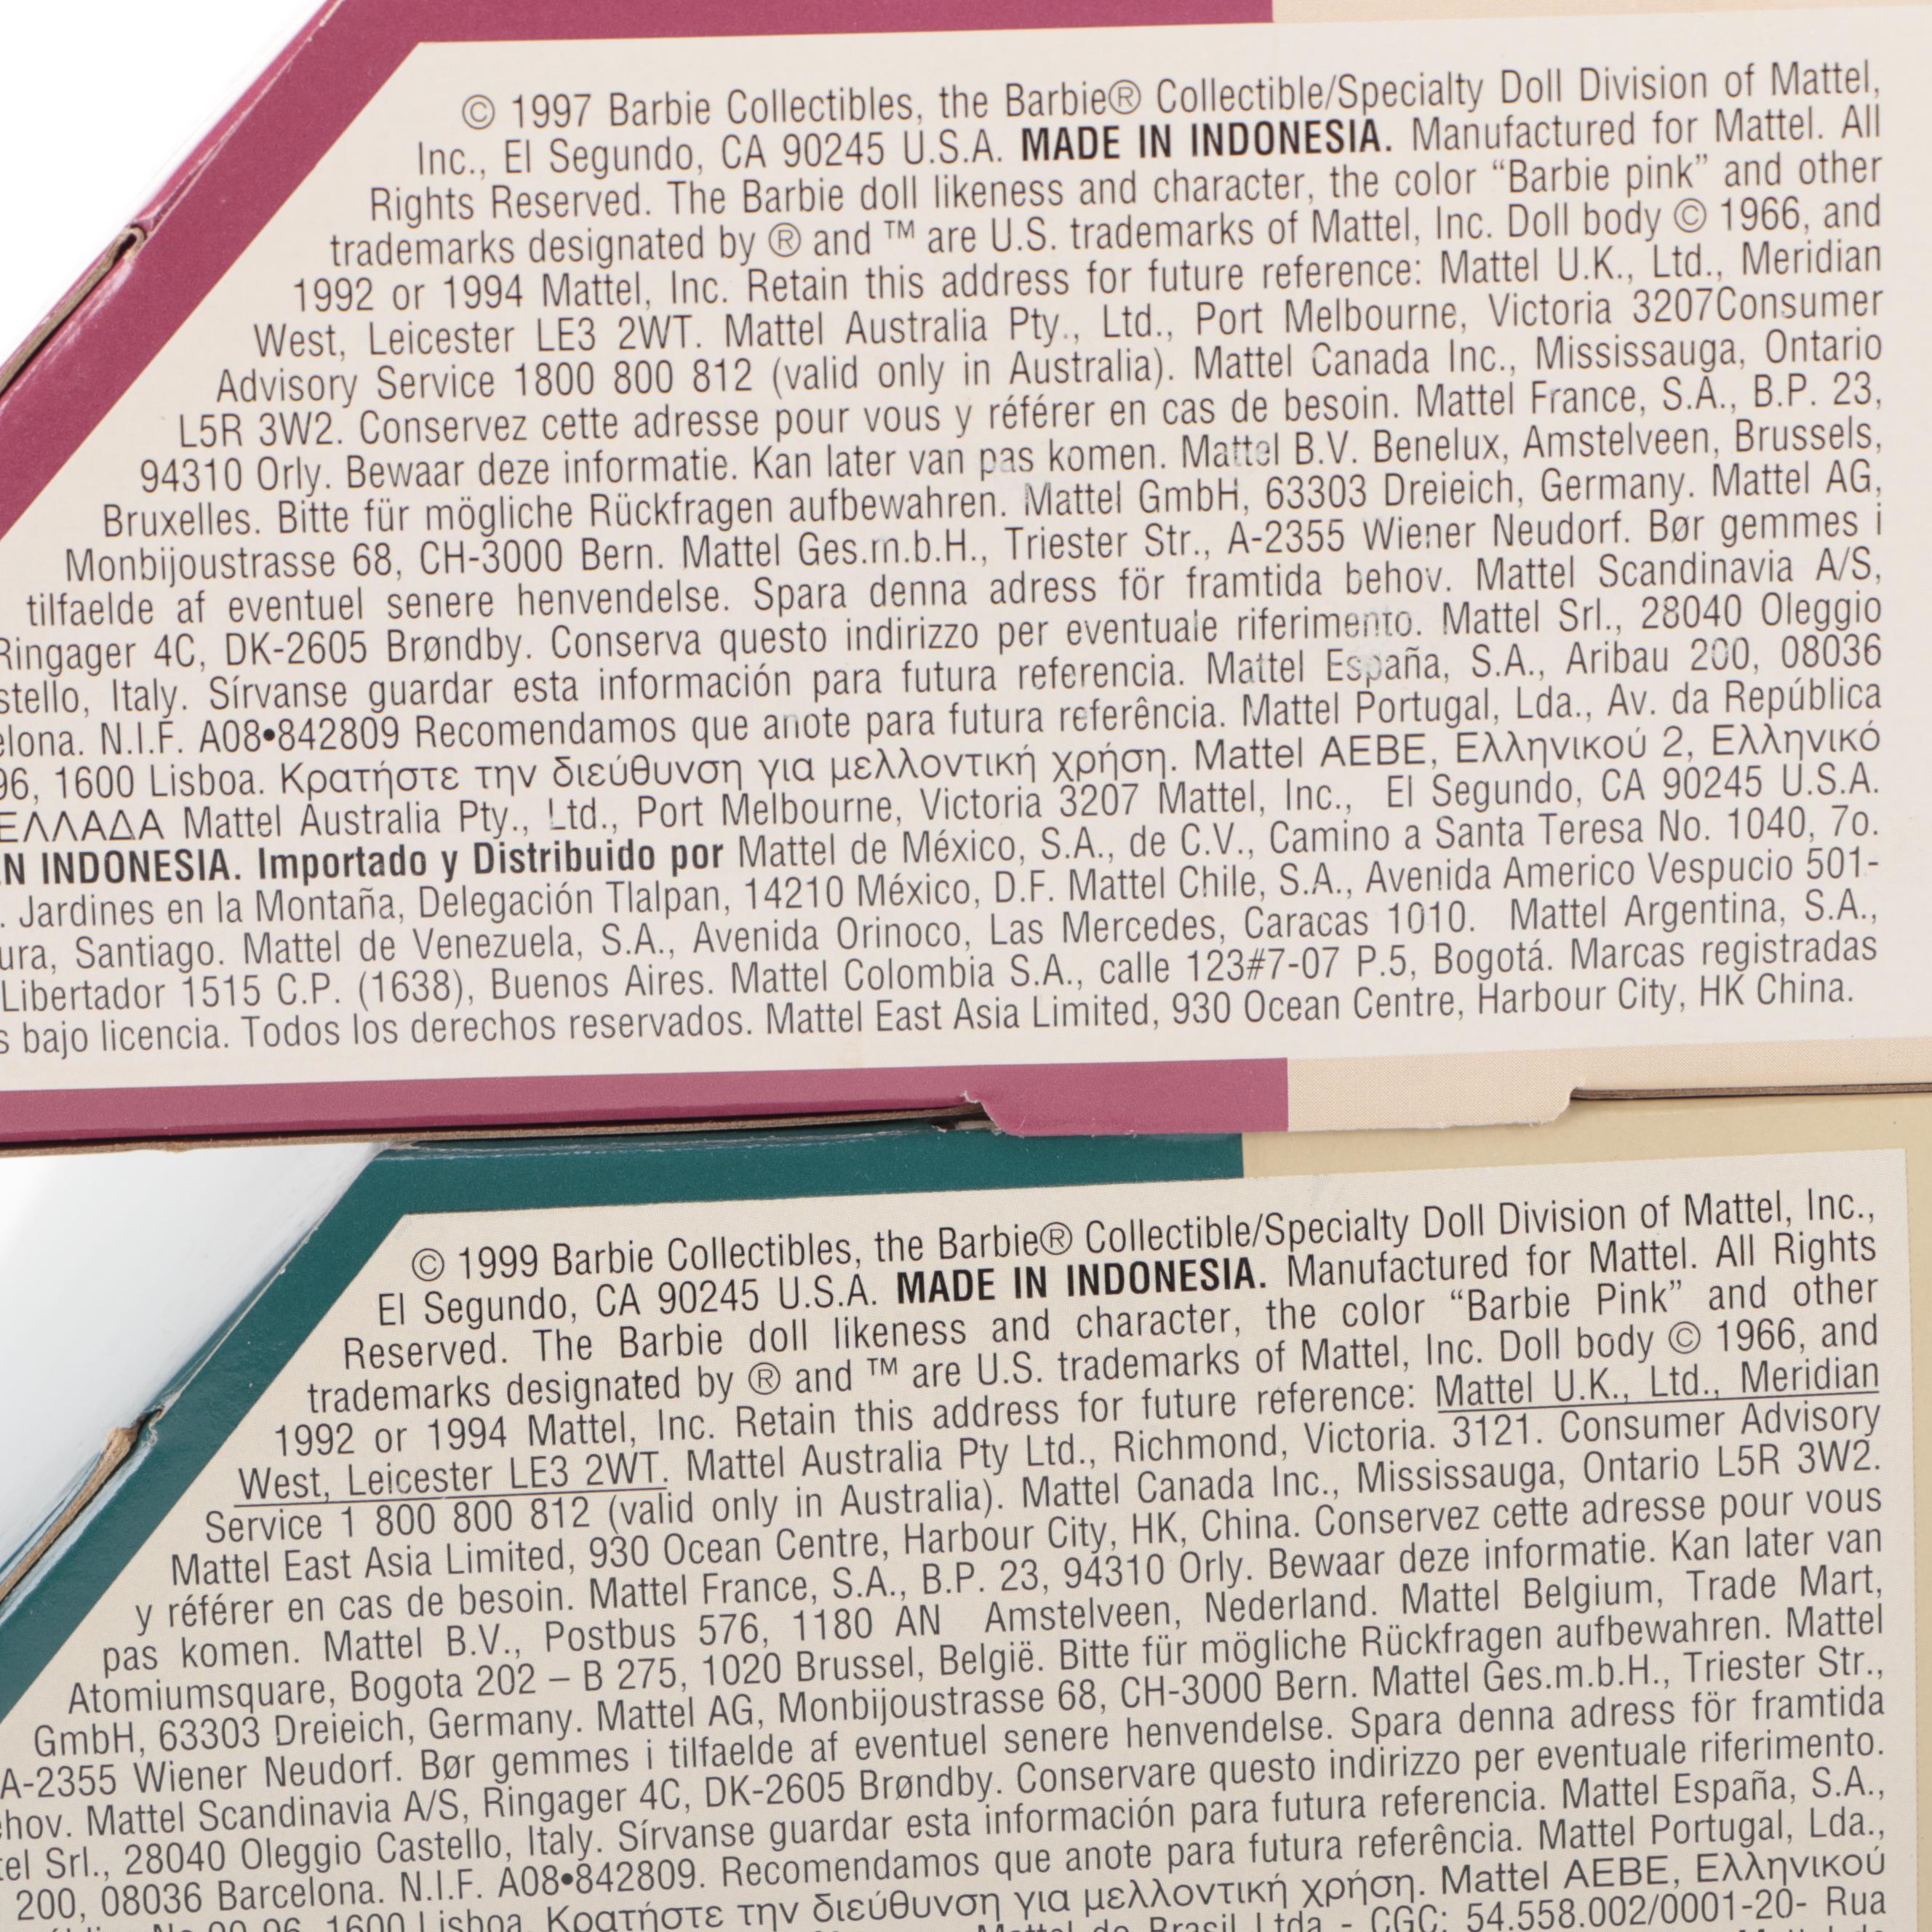 © 1997 Barbie Collectibles, the Barbie® Collectible/Specialty Doll Division of Mattel,
Inc., El Segundo, CA 90245 U.S.A. MADE IN INDONESIA. Manufactured for Mattel. All
Rights Reserved. The Barbie doll likeness and character, the color “Barbie pink” and other
trademarks designated by ® and ™ are U.S. trademarks of Mattel, Inc. Doll body © 1966, and
1992 or 1994 Mattel, Inc. Retain this address for future reference: Mattel U.K., Ltd., Meridian
West, Leicester LE3 2WT. Mattel Australia Pty., Ltd., Port Melbourne, Victoria 3207Consumer
Advisory Service 1800 800 812 (valid only in Australia). Mattel Canada Inc., Mississauga, Ontario
L5R 3W2. Conservez cette adresse pour vous y référer en cas de besoin. Mattel France, S.A., B.P. 23,
94310 Orly. Bewaar deze informatie. Kan later van pas komen. Mattel B.V. Benelux, Amstelveen, Brussels,
Bruxelles. Bitte für mögliche Rückfragen aufbewahren. Mattel GmbH, 63303 Dreieich, Germany. Mattel AG,
Monbijoustrasse 68, CH-3000 Bern. Mattel Ges.m.b.H., Triester Str., A-2355 Wiener Neudorf. Bør gemmes i
tilfaelde af eventuel senere henvendelse. Spara denna adress för framtida behov. Mattel Scandinavia A/S,
Ringager 4C, DK-2605 Brøndby. Conserva questo indirizzo per eventuale riferimento. Mattel Srl., 28040 Oleggio
stello, Italy. Sírvanse guardar esta información para futura referencia. Mattel España, S.A., Aribau 200, 08036
elona. N.I.F. A08•842809 Recomendamos que anote para futura referência. Mattel Portugal, Lda., Av. da República
96, 1600 Lisboa. Κρατήστε την διεύθυνση για μελλοντική χρήση. Mattel AEBE, Ελληνικού 2, Ελληνικό
ΕΛΛΑΔΑ Mattel Australia Pty., Ltd., Port Melbourne, Victoria 3207 Mattel, Inc., El Segundo, CA 90245 U.S.A.
N INDONESIA. Importado y Distribuido por Mattel de México, S.A., de C.V., Camino a Santa Teresa No. 1040, 7o.
. Jardines en la Montaña, Delegación Tlalpan, 14210 México, D.F. Mattel Chile, S.A., Avenida Americo Vespucio 501-
ura, Santiago. Mattel de Venezuela, S.A., Avenida Orinoco, Las Mercedes, Caracas 1010. Mattel Argentina, S.A.,
Libertador 1515 C.P. (1638), Buenos Aires. Mattel Colombia S.A., calle 123#7-07 P.5, Bogotá. Marcas registradas
s bajo licencia. Todos los derechos reservados. Mattel East Asia Limited, 930 Ocean Centre, Harbour City, HK China.
© 1999 Barbie Collectibles, the Barbie® Collectible/Specialty Doll Division of Mattel, Inc.,
El Segundo, CA 90245 U.S.A. MADE IN INDONESIA. Manufactured for Mattel. All Rights
Reserved. The Barbie doll likeness and character, the color “Barbie Pink” and other
trademarks designated by ® and ™ are U.S. trademarks of Mattel, Inc. Doll body © 1966, and
1992 or 1994 Mattel, Inc. Retain this address for future reference: Mattel U.K., Ltd., Meridian
West, Leicester LE3 2WT. Mattel Australia Pty Ltd., Richmond, Victoria. 3121. Consumer Advisory
Service 1 800 800 812 (valid only in Australia). Mattel Canada Inc., Mississauga, Ontario L5R 3W2.
Mattel East Asia Limited, 930 Ocean Centre, Harbour City, HK, China. Conservez cette adresse pour vous
y référer en cas de besoin. Mattel France, S.A., B.P. 23, 94310 Orly. Bewaar deze informatie. Kan later van
pas komen. Mattel B.V., Postbus 576, 1180 AN Amstelveen, Nederland. Mattel Belgium, Trade Mart,
Atomiumsquare, Bogota 202 – B 275, 1020 Brussel, België. Bitte für mögliche Rückfragen aufbewahren. Mattel
GmbH, 63303 Dreieich, Germany. Mattel AG, Monbijoustrasse 68, CH-3000 Bern. Mattel Ges.m.b.H., Triester Str.,
A-2355 Wiener Neudorf. Bør gemmes i tilfaelde af eventuel senere henvendelse. Spara denna adress för framtida
ehov. Mattel Scandinavia A/S, Ringager 4C, DK-2605 Brøndby. Conservare questo indirizzo per eventuale riferimento.
tel Srl., 28040 Oleggio Castello, Italy. Sírvanse guardar esta información para futura referencia. Mattel España, S.A.,
200, 08036 Barcelona. N.I.F. A08•842809. Recomendamos que anote para futura referência. Mattel Portugal, Lda.,
96, 1600 Lisboa. Κρατήστε την διεύθυνση για μελλοντική χρήση. Mattel AEBE, Ελληνικού
Mattel do Brasil Ltda - CGC: 54.558.002/0001-20- Rua